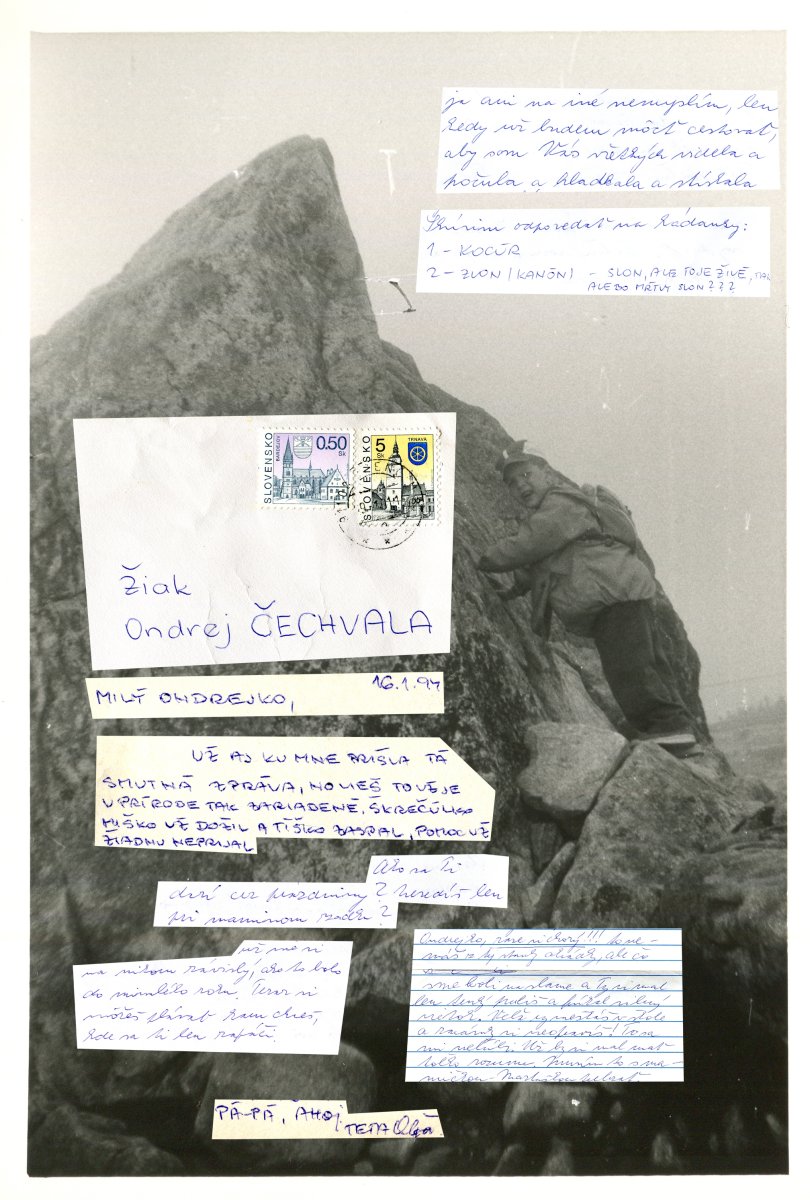 ja ani na iné nemyslím, len
kedy už budem môcť cestovať,
aby som Vás všetkých videla a
počula a hladkala a stískala
Skúsim odpovedať na hádanky:
1. - KOCÚR
2 - ZLON (KANÓN) - SLON, ALE TO JE ŽIVÉ,
ALEBO MŔTVY SLON???
SLOVENSKO
BARDEJOV
0.50
Sk
SLOVENSKO
5
Sk
TRNAVA
Žiak
Ondrej ČECHVALA
16.1.94
MILÝ ONDREJKO,
UŽ AJ KU MNE PRIŠLA TÁ
SMUTNÁ ZPRÁVA, NO VIEŠ TO UŽ JE
V PRÍRODE TAK ZARIADENÉ, ŠKREČÚLIKO
MIŠKO UŽ DOŽIL A TÍŠKO ZASPAL, POMOC UŽ
ŽIADNU NEPRIJAL
Ako sa Ti
darí cez prázdniny? Nesedíš len
pri maminom zadku?
už nie si
na nikom závislý, ako to bolo
do minulého roku. Teraz si
môžeš plávať kam chceš,
kde sa ti len zapáči.
Ondrejko, zase si chorý!!!
sme boli na slame a Ty si mal
len tenký
a
mi neľúbi. Už by si mal mať
toľko rozumu.
PÁ-PÁ, AHOJ
TETA Oľga